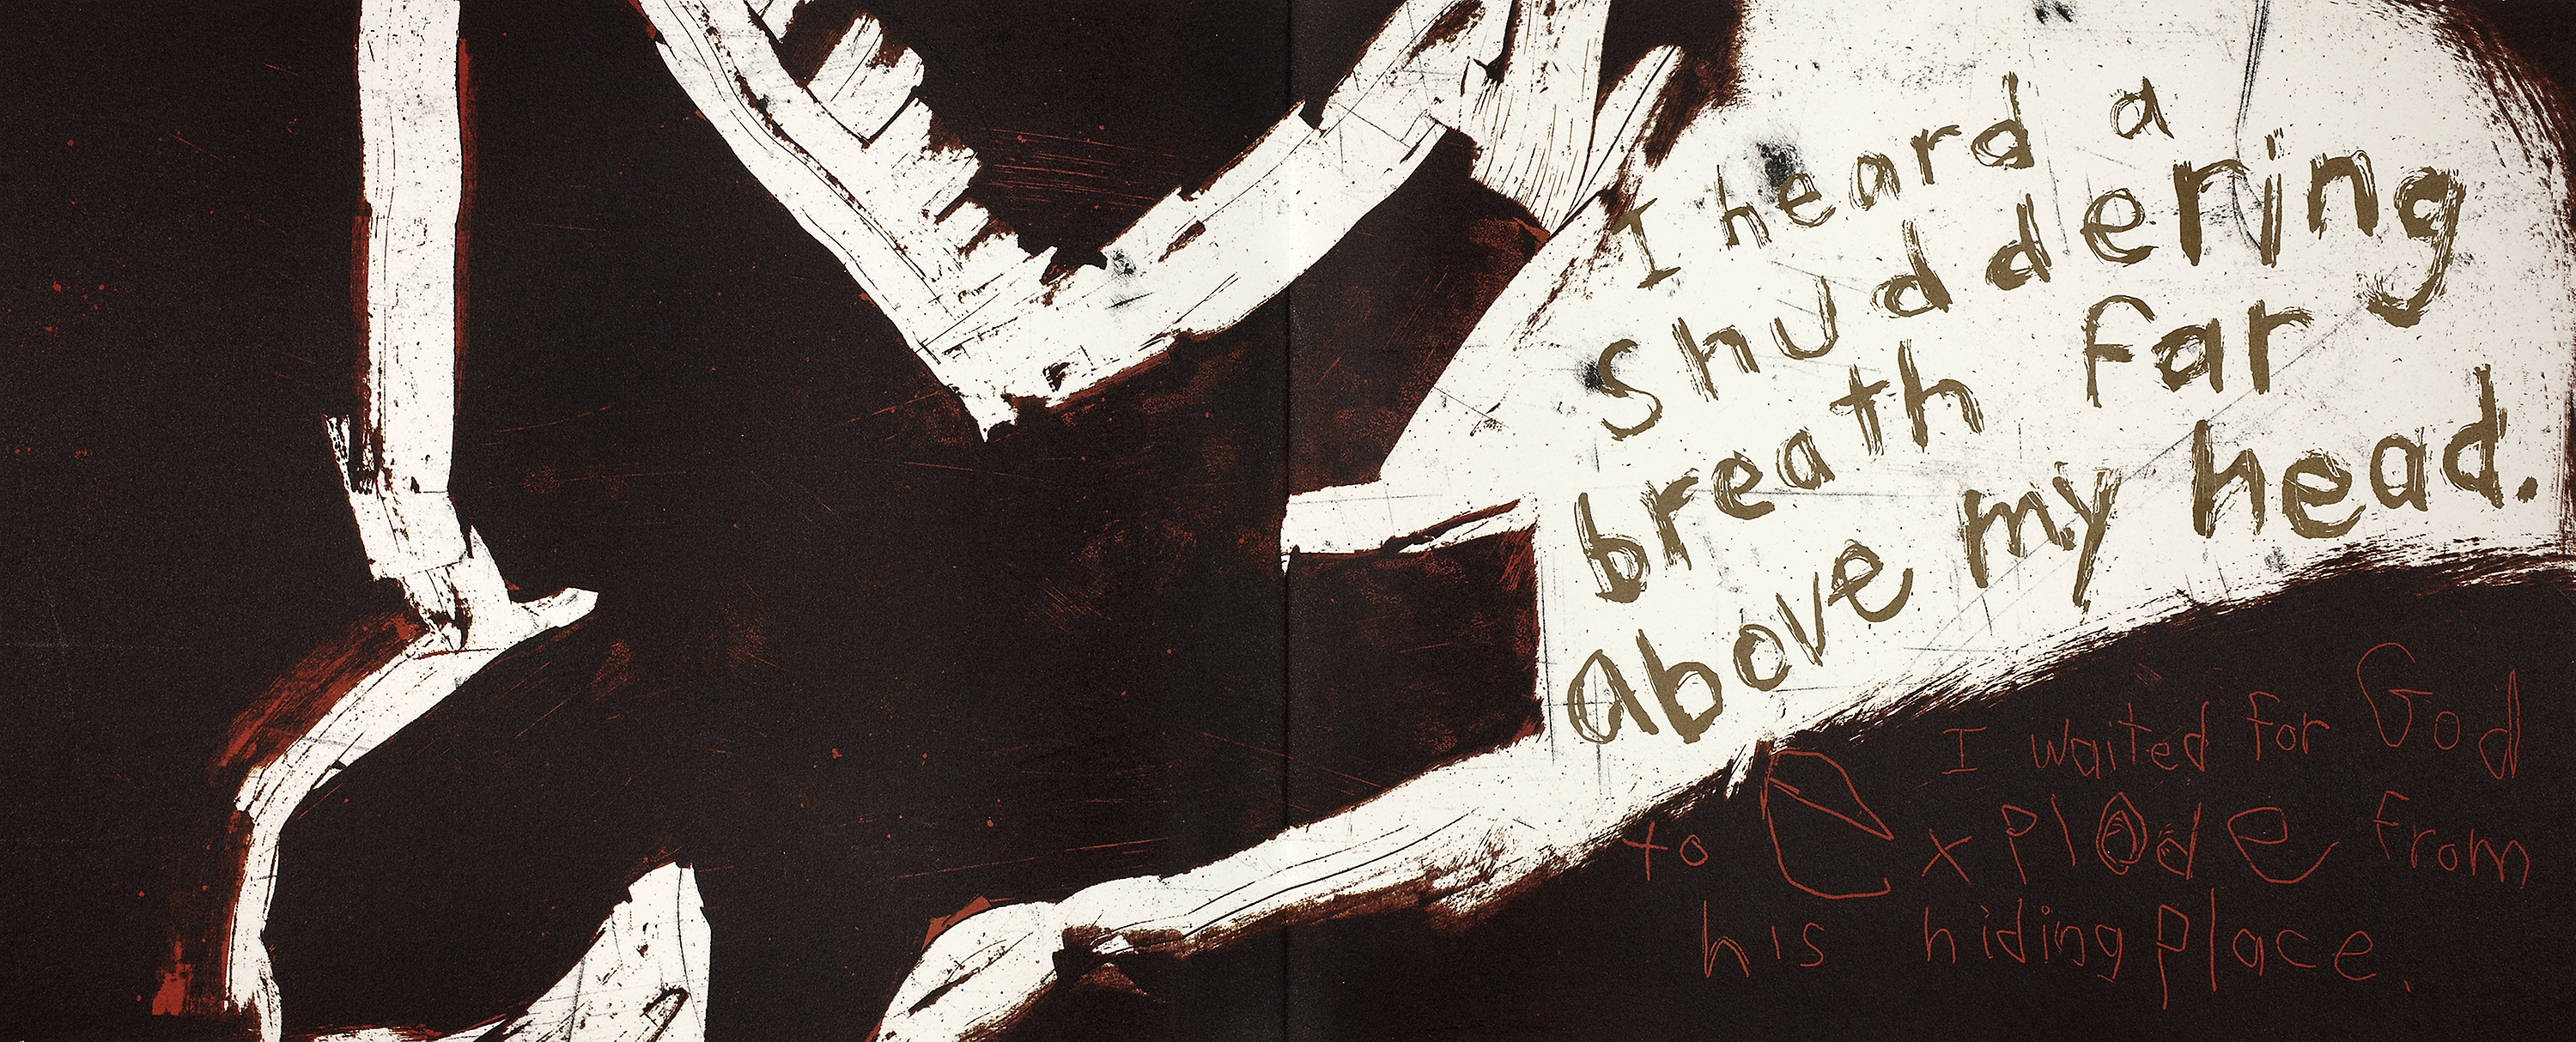 I heard a
shuddering
breath far
above my head.
I waited for God
to Explode from
his hiding place.